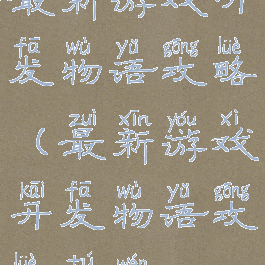 最新游戏开
fā wù yǔ gōng lüè
发物语攻略
zuì xīn yóu xì
(最新游戏
kāi fā wù yǔ gōng
开发物语攻
lüè tú wén